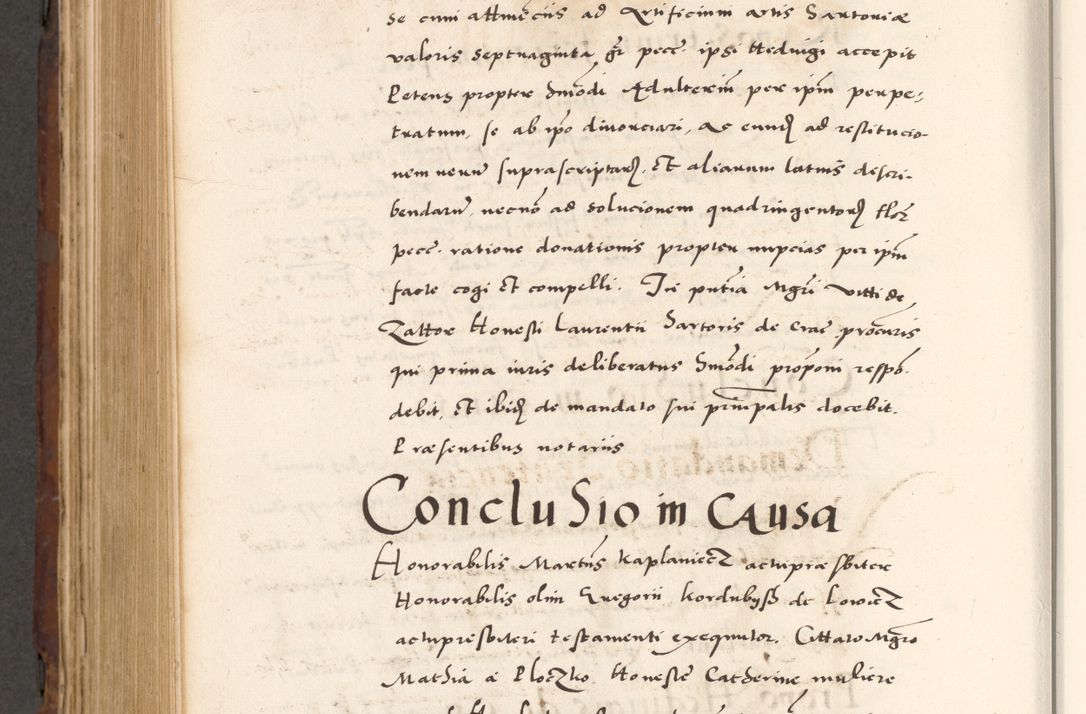 se cum attinenciis ad Artificium artis Sartoriæ
valoris septuaginta gr pecc. ipsi Heduigi accepit
Petens propter Smodi Adulterium per ipm perpe-
tratum, se ab ipo diuorciari, ac eund ad restitucio-
nem rerum suprascriptar, Et aliarum latius descri-
bendarum necno ad solucionem quadringentor flor
pecc. ratione donationis propter nupcias per ipm
facte cogi Et compelli. In pntia Mgri Vitti de
Zattor Honesti Laurentii Sartoris de Crac procuris
qui prima iuris deliberatus Smodi proponi respo-
debit, Et ibid de mandato sui prncipalis docebit.
Præsentibus notariis
ConcluSio in CAusa
Honorabilis Martins Kaplaniecz actupræsbiter
Honorabilis olim Gregorii Kordubysz de Lowicz
actupresbiteri testamenti exequutor. Cittato Mgro
Mathia a Ploczko Honeste Catherine muliere